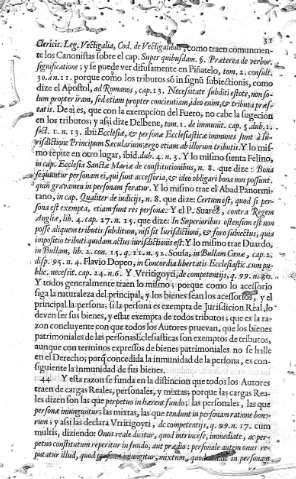 Clericis. Leg. Vectigalia, Cod. de Vectigalibus, como traen comunmen-
te los Canonistas sobre el cap. Super quibusdam. §. Praterea de verbor.
significatione; y se puede ver difusamente en Piñatelo, tom. 2. consult.
30. an. 11. porque como los tributos sō in signū subiectionis, como
dize el Apostol, ad Romanos, cap. 13. Necesitate subditi estote, non so-
lum propter iram, sed etiam propter concientiam, ideo enim, & tributa præs-
tatis. De ai es, que con la exempcion del Fuero, no cabe la sugecion
en los tributos; y asi dize Delbene, tom. 1. de inmunit. cap. 5. dub. 2.
sect. 1. n. 13. ibi: Ecclesiæ, & personæ Ecclesiasticæ inmunes sunt à Iu-
risdictione Principum Sæcularium: ergo etiam ab illorum tributis. Y lo mis-
mo repite en otro lugar, ibid. dub. 4. n. 3. Y lo mismo sienta Felino,
in cap. Ecclesia Sanctæ Mariæ de constitutionibus, n. 8. que dize: Bona
sequuntur personam ei, qui sunt accessoria, & non obligari bona non possunt,
quin gravamen in personam feratur. Y lo mismo trae el Abad Panormi-
tano, in cap. Qualiter de iudicijs, n. 8. que dize: Certum est, quod si per-
sona est exempta, etiam sunt res personæ: Y el P. Suarez, contra Regem
Angliæ, lib. 4. cap. 27. n. 15. que dize: In Superioribus ostensum est non
posse aliquem tributis subditum, nisi sit Iurisdictioni, & foro subiectus, quia
impositio tributi quædam actus iurisdictionis est: Y lo mismo trae Duardo,
in Bullam, lib. 2. can. 15. q. 11. n. 52. Sousa, in Bullam Cœnæ, cap. 2.
disp. 95. n. 4. Flavio Dopeo, in Concordia libertatis Ecclesiastic. com pu-
blic. necesit. cap. 24. n. 6. Y Vrritigoyti, de competentijs, q. 99. n. 20.
Y todos generalmente traen lo mismo; porque como lo acessorio
siga la naturaleza del principal, y los bienes sean los acessorios, y el
principal la persona: si la persona es exempta de Jurisdicion Real, lo
deven ser sus bienes, y estar exempta de todos tributos; que es la ra-
zon concluyente con que todos los Autores pruevan, que los bienes
patrimoniales de las personas Ecclesiasticas son exemptos de tributos,
aunque con terminos expressos de bienes patrimoniales no se halle
en el Derecho; porq̄ concedida la inmunidad de la persona, es con-
siguiente la inmunidad de sus bienes.
44 Y esta razon se funda en la distincion que todos los Autores
traen de cargas Reales, personales, y mixtas; porque las cargas Rea-
les dizen son las que perpetuo inhærent fundo; las personales, las que
personæ iniunguntur; las mixtas, las que tendunt in personam ratione bono-
rum; y asi las declara Vrritigoyti, de competentijs, q. 99. n. 17. cum
multis, diziendo: Onus reale dicitur, quod intrinsece, immediate, ac per-
petuo constitutum reperitur in fundo, aut prædio: personale autem onus re-
putatur illud, quod in personam